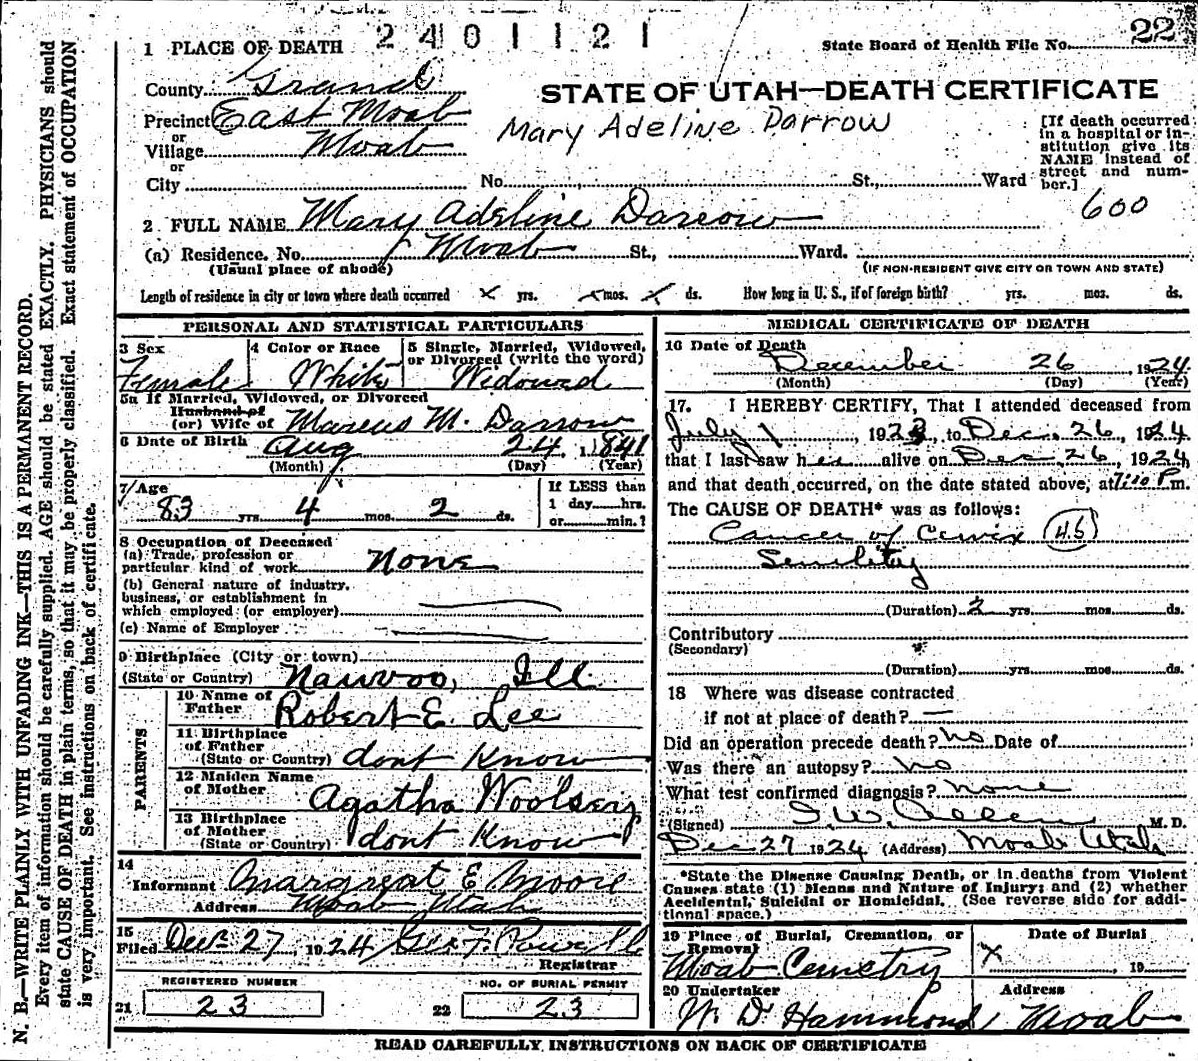 2401121
22
1 PLACE OF DEATH
State Board of Health File No.
County Grand
STATE OF UTAH—DEATH CERTIFICATE
Precinct East Moab
Mary Adeline Darrow
or
Village Moab
or
City No. St., Ward
[If death occurred
in a hospital or in-
stitution give its
NAME instead of
street and num-
ber.]
600
2 FULL NAME Mary Adeline Darrow
(a) Residence. No. Moab St., Ward.
(Usual place of abode) (IF NON-RESIDENT GIVE CITY OR TOWN AND STATE)
Length of residence in city or town where death occurred x yrs. x mos. x ds. How long in U. S., if of foreign birth? yrs. mos. ds.
PERSONAL AND STATISTICAL PARTICULARS
3 Sex 4 Color or Race 5 Single, Married, Widowed,
or Divorced (write the word)
Female White Widowed
5a If Married, Widowed, or Divorced
Husband of
(or) Wife of Marcus M. Darrow
6 Date of Birth Aug 24 1841
(Month) (Day) (Year)
7 Age If LESS than
1 day hrs.
or min.?
83 yrs 4 mos. 2 ds.
8 Occupation of Deceased
(a) Trade, profession or
particular kind of work None
(b) General nature of industry,
business, or establishment in
which employed (or employer)
(c) Name of Employer
9 Birthplace (City or town)
(State or Country) Nauvoo, Ill
PARENTS
10 Name of
Father Robert E. Lee
11 Birthplace
of Father
(State or Country) dont Know
12 Maiden Name
of Mother Agatha Woolsey
13 Birthplace
of Mother
(State or Country) dont Know
14
Informant Margreat E Moore
Address Moab Utah
15
Filed Dec 27 1924 Geo. F. Powell
Registrar
REGISTERED NUMBER NO. OF BURIAL PERMIT
21 23 22 23
MEDICAL CERTIFICATE OF DEATH
16 Date of Death
December 26, 1924
(Month) (Day) (Year)
17. I HEREBY CERTIFY, That I attended deceased from
July 1, 1923, to Dec. 26, 1924
that I last saw her alive on Dec 26, 1924,
and that death occurred, on the date stated above, at 7:10 P.m.
The CAUSE OF DEATH* was as follows:
Cancer of Cervix 45
Senility
(Duration) 2 yrs. mos. ds.
Contributory
(Secondary)
(Duration) yrs. mos. ds.
18 Where was disease contracted
if not at place of death? —
Did an operation precede death? no Date of
Was there an autopsy? no
What test confirmed diagnosis? none
(Signed) I. W. Allen M. D.
Dec 27 1924 (Address) Moab Utah
*State the Disease Causing Death, or in deaths from Violent
Causes state (1) Means and Nature of Injury; and (2) whether
Accidental, Suicidal or Homicidal. (See reverse side for addi-
tional space.)
19 Place of Burial, Cremation, or Date of Burial
Removal
Moab Cemetry x 19
20 Undertaker Address
W. D. Hammond, Moab
READ CAREFULLY INSTRUCTIONS ON BACK OF CERTIFICATE
N. B.—WRITE PLAINLY WITH UNFADING INK—THIS IS A PERMANENT RECORD.
Every item of information should be carefully supplied. AGE should be stated EXACTLY. PHYSICIANS should
state CAUSE OF DEATH in plain terms, so that it may be properly classified. Exact statement of OCCUPATION
is very important. See instructions on back of certificate.